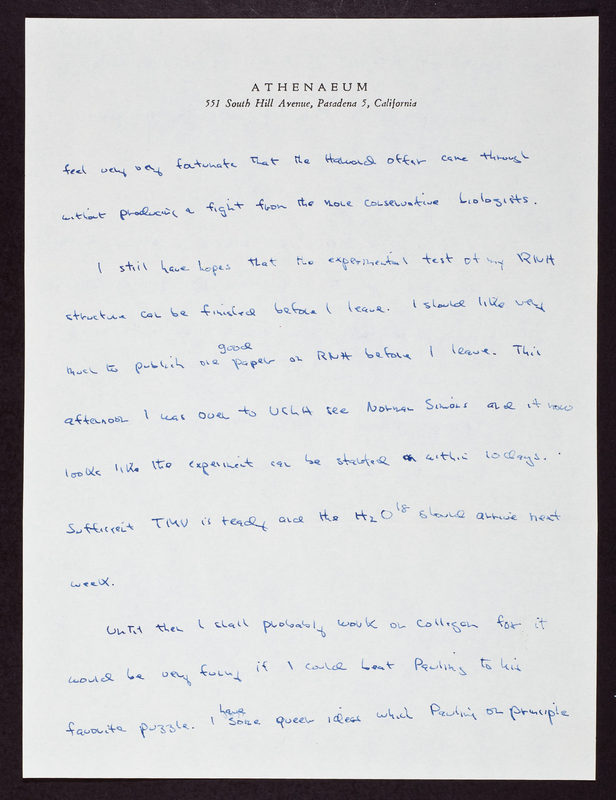 ATHENAEUM
551 South Hill Avenue, Pasadena 5, California
feel very very fortunate that the Harvard offer came through
without producing a fight from the more conservative biologists.
I still have hopes that the experimental test of my RNA
structure can be finished before I leave. I should like very
much to publish one good paper on RNA before I leave. This
afternoon I was over to UCLA see Norman Simons and it now
looks like the experiment can be started within 10 days.
Sufficient TMV is ready and the H2O18 should arrive next
week.
Until then I shall probably work on collegen for it
would be very funny if I could beat Pauling to his
favorite puzzle. I have some queer ideas which Pauling on principle